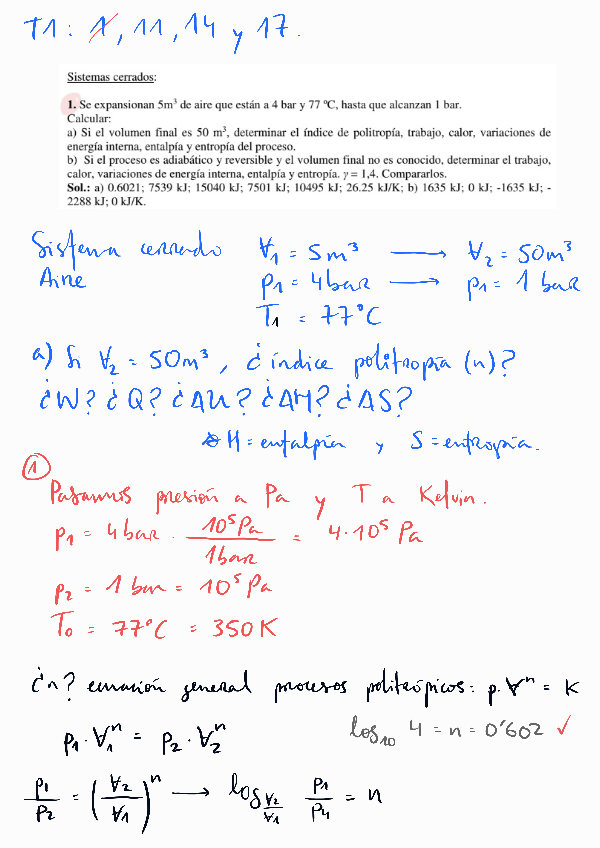 T1: 1, 11, 14 y 17.
Sistemas cerrados:
1. Se expansionan 5m³ de aire que están a 4 bar y 77 ºC, hasta que alcanzan 1 bar.
Calcular:
a) Si el volumen final es 50 m³, determinar el índice de politropía, trabajo, calor, variaciones de
energía interna, entalpía y entropía del proceso.
b) Si el proceso es adiabático y reversible y el volumen final no es conocido, determinar el trabajo,
calor, variaciones de energía interna, entalpía y entropía. γ = 1,4. Compararlos.
Sol.: a) 0.6021; 7539 kJ; 15040 kJ; 7501 kJ; 10495 kJ; 26.25 kJ/K; b) 1635 kJ; 0 kJ; -1635 kJ; -
2288 kJ; 0 kJ/K.
Sistema cerrado V₁ = 5m³ ⟶ V₂ = 50m³
Aire p₁ = 4bar ⟶ p₁ = 1 bar
T₁ = 77°C
a) Si V₂ = 50m³, ¿índice politropía (n)?
¿W? ¿Q? ¿ΔU? ¿ΔH? ¿ΔS?
H = entalpía y S = entropía.
①
Pasamos presión a Pa y T a Kelvin.
p₁ = 4 bar · 10⁵Pa / 1bar = 4·10⁵ Pa
p₂ = 1 bar = 10⁵ Pa
T₀ = 77°C = 350 K
¿n? ecuación general procesos politrópicos: p·Vⁿ = K
p₁·V₁ⁿ = p₂·V₂ⁿ log₁₀ 4 = n = 0'602 ✓
p₁/p₂ = (V₂/V₁)ⁿ ⟶ log V₂/V₁ p₁/p₄ = n